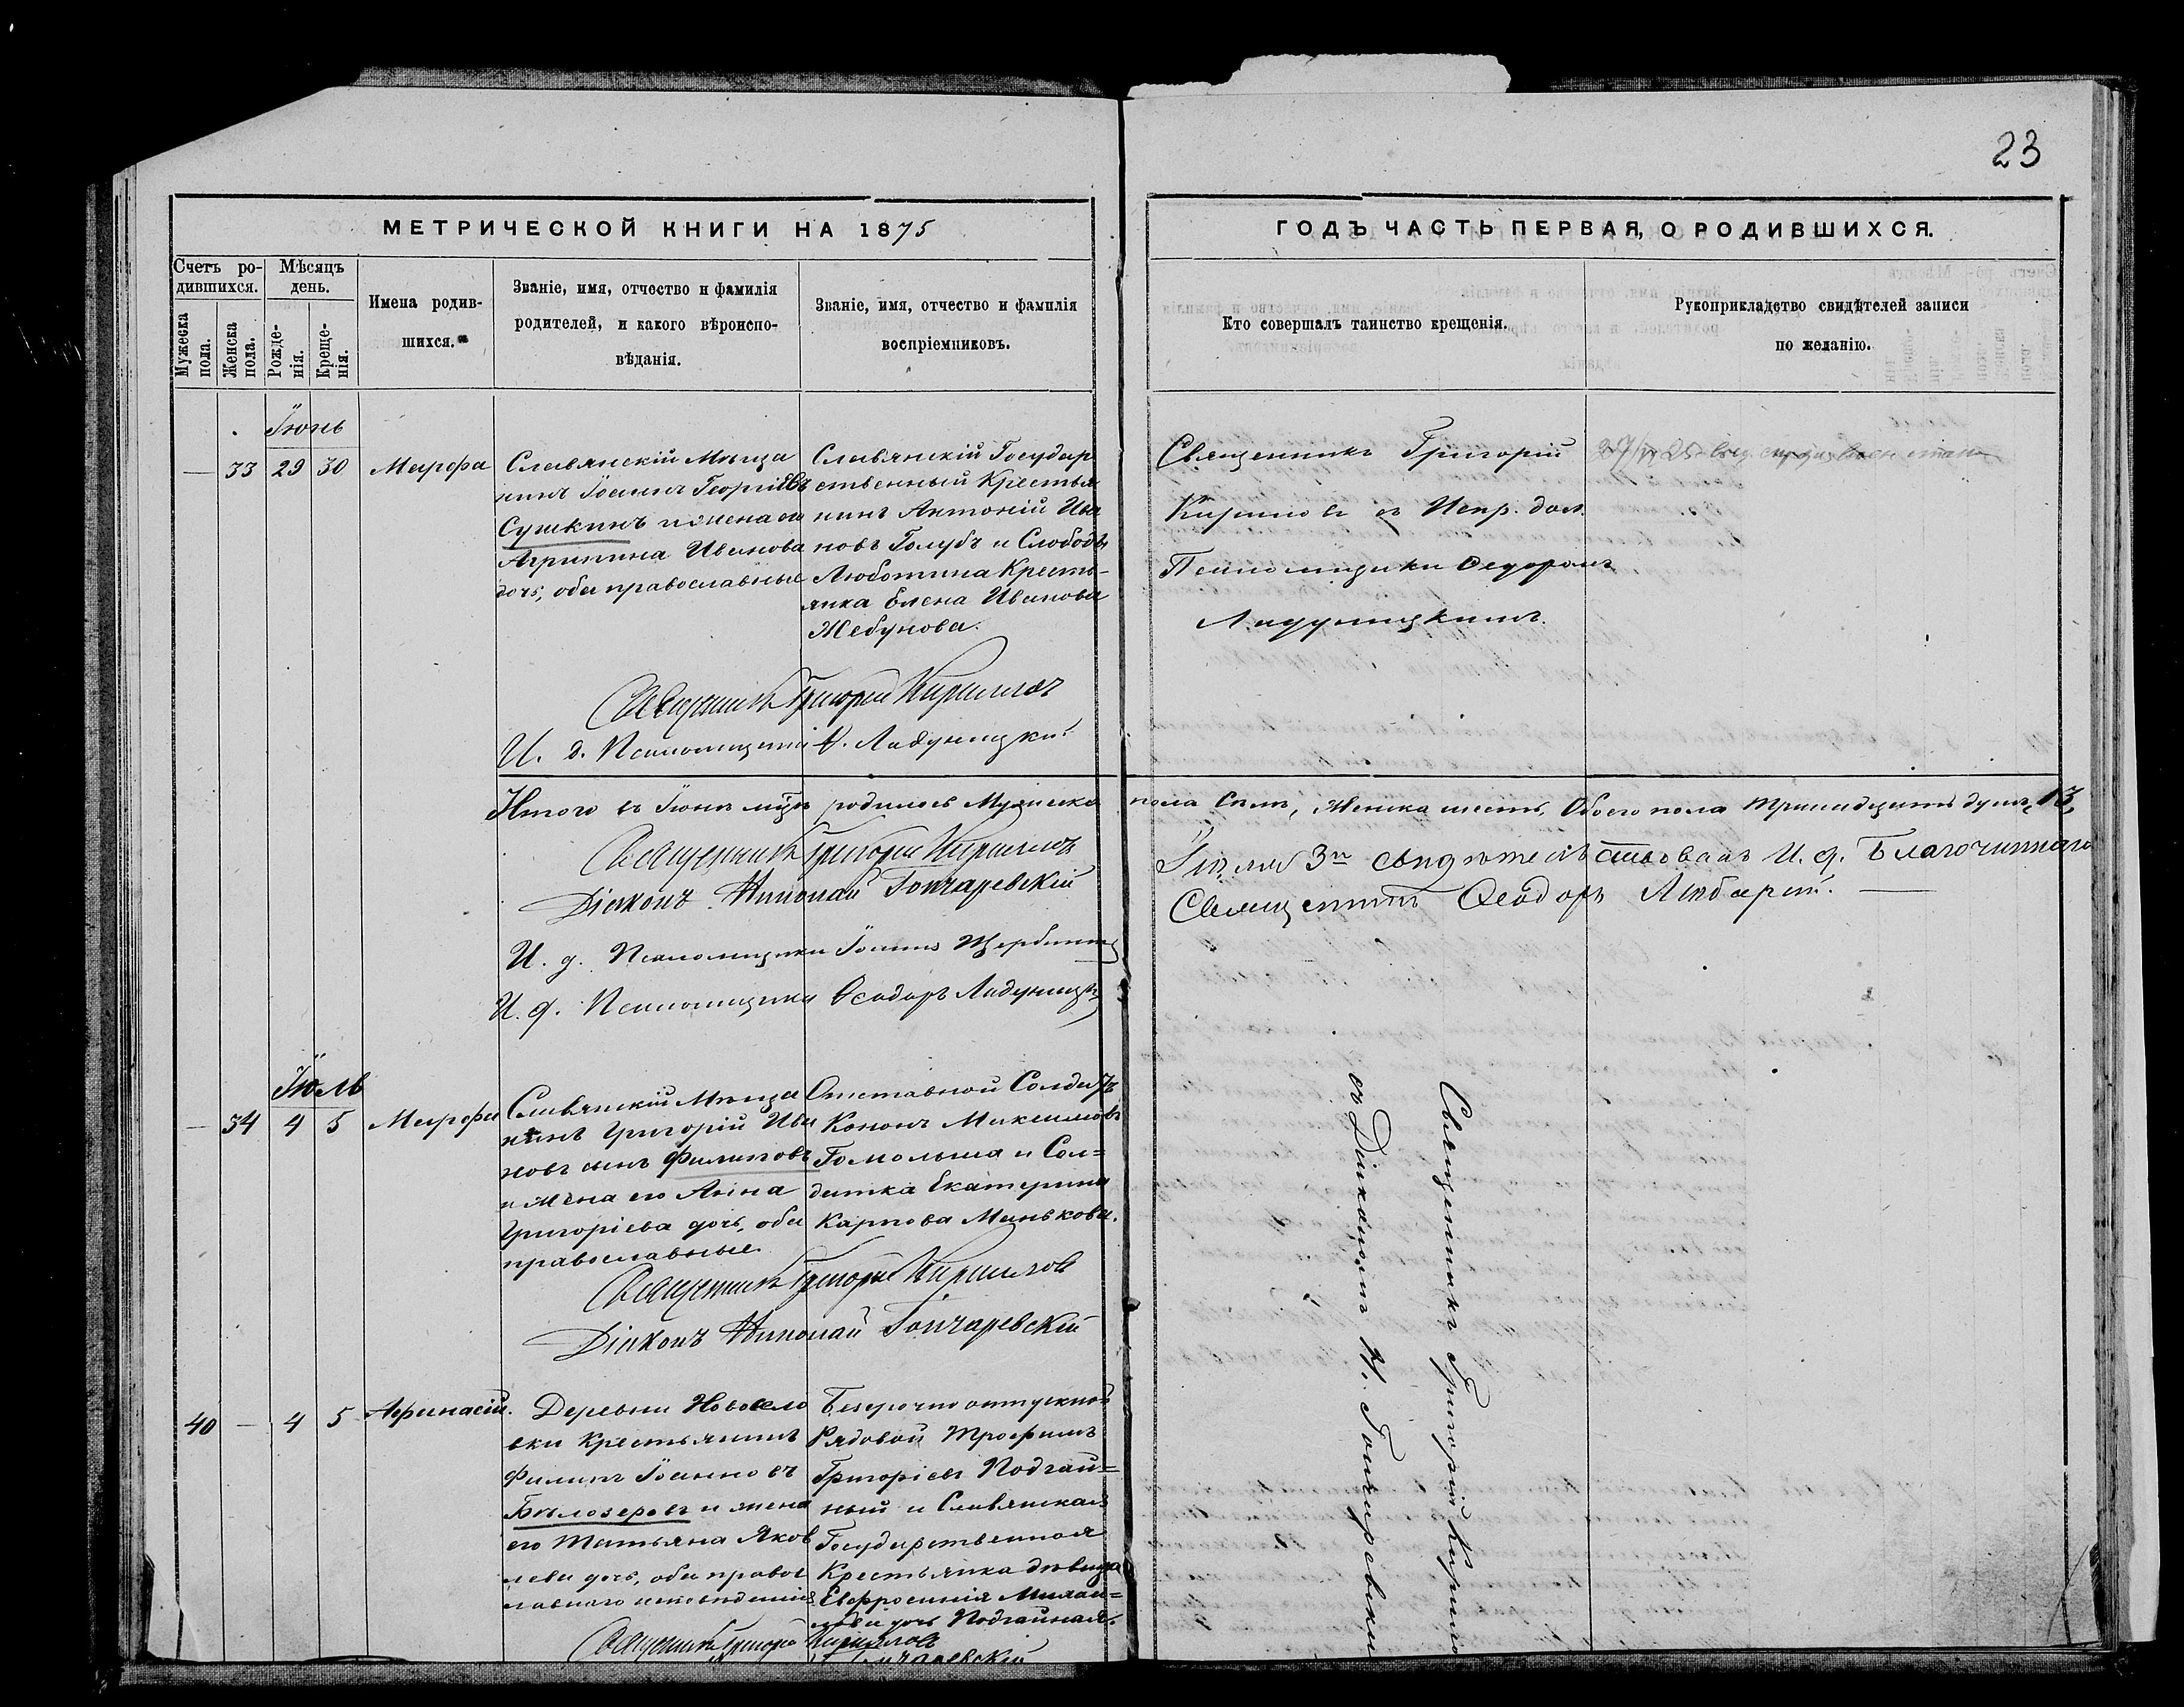 23
МЕТРИЧЕСКОЙ КНИГИ НА 1875
ГОДЪ ЧАСТЬ ПЕРВАЯ, О РОДИВШИХСЯ.
Счетъ ро-
дившихся.
Мужеска
пола.
Женска
пола.
Мѣсяцъ
день.
Рожде-
нія.
Креще-
нія.
Имена родив-
шихся.
Званіе, имя, отчество и фамилія
родителей, и какого вѣроиспо-
вѣданія.
Званіе, имя, отчество и фамилія
воспріемниковъ.
Кто совершалъ таинство крещенія.
Рукоприкладство свидѣтелей записи
по желанію.
Іюнь
— 33 29 30 Марфа
Славянскій Мѣща
нинъ Іоаннъ Георгіевъ
Сушкинъ и жена его
Агрипина Иванова
дочь, оба православные
Славянскій Государ
ственный Крестья
нинъ Антоній Ива
новъ Голубъ и Слободы
Люботина Кресть-
янка Елена Иванова
Жебунова.
Священникъ Григорій
Кириловъ съ Испр. дол.
Псаломщика Ѳедоромъ
Ладуницкимъ.
Священникъ Григорій Кириловъ
И. д. Псаломщика Ѳ. Ладуницкій
Итого въ Іюнѣ мѣцѣ родилось Мужеска пола Семь, Женска шесть, Обоего пола тринадцать душъ, 13,
Священникъ Григорій Кириловъ
Діаконъ Николай Гончаревскій
И. д. Псаломщика Іоаннъ Щербина
И. д. Псаломщика Ѳеодоръ Ладуницкій
Іюля 3го свидѣтельствовалъ И. д. Благочиннаго
Священникъ Ѳеодоръ
Іюль
— 34 4 5 Марфа
Славянскій Мѣща
нинъ Григорій Ива
новъ сынъ Филиповъ
и жена его Анна
Григоріева дочь, оба
православные.
Отставной Солдатъ
Кононъ Максимовъ
Гомольша и Сол=
датка Екатерина
Карпова Манькова.
Священникъ Григорій Кириловъ
Діаконъ Николай Гончаревскій
Священникъ Григорій Кирило
съ Діакономъ Н. Гончаревски
40 — 4 5 Афанасій.
Деревни Новосело
вки Крестьянинъ
Филипъ Іоанновъ
Бѣлозеровъ и жена
его Татьяна Яков
лева дочь, оба правос
лавнаго исповѣданія
Безсрочно отпускной
Рядовой Трофимъ
Григоріевъ Подгай=
ный и Славянская
Государственная
Крестьянка дѣвица
Евфросинія Михаи=
лова дочь Подгайная.
Священникъ Григорій Кириловъ